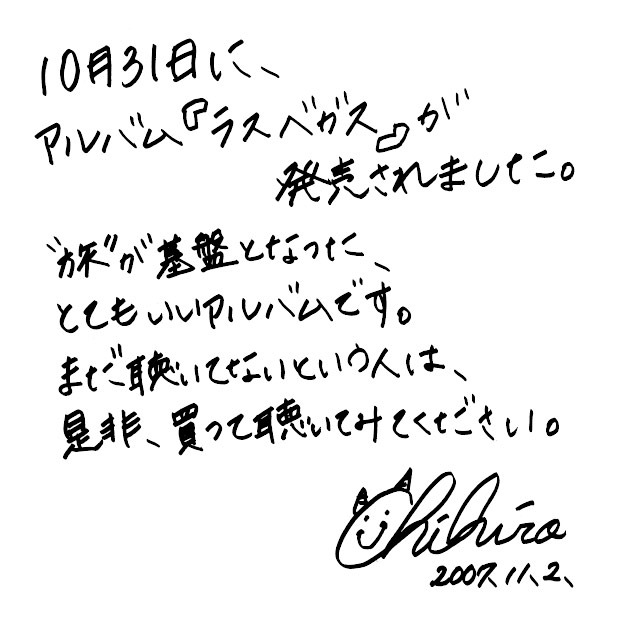 10月31日に、
アルバム『ラスベガス』が
発売されました。
“旅”が基盤となった、
とてもいいアルバムです。
まだ聴いてないという人は、
是非、買って聴いてみてください。
Chihiro
2007.11.2.